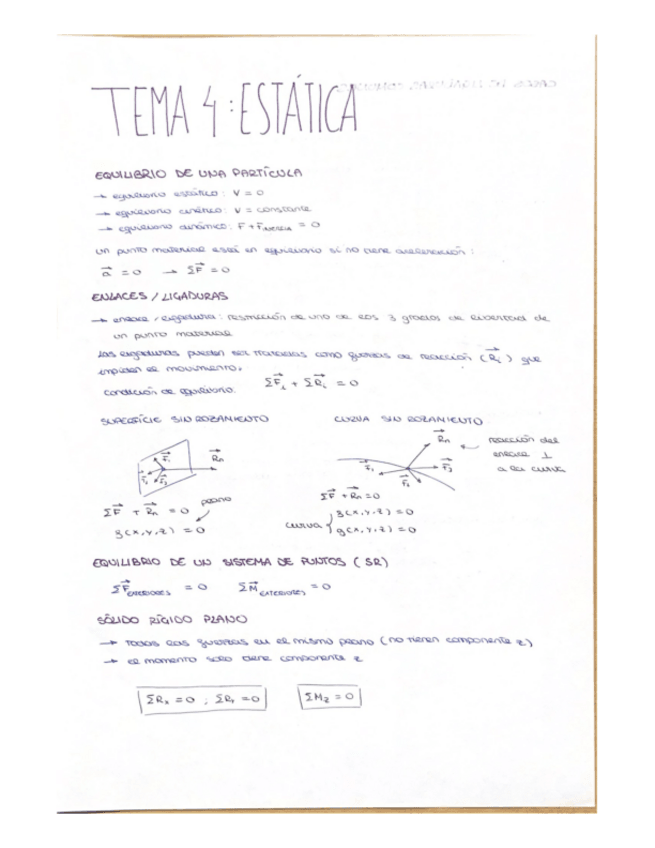 TEMA 4: ESTÁTICA
EQUILIBRIO DE UNA PARTÍCULA
→ equilibrio estático: V = 0
→ equilibrio cinético: V = constante
→ equilibrio dinámico: F + F_inercia = 0
un punto material está en equilibrio si no tiene aceleración:
a⃗ = 0 → ΣF⃗ = 0
ENLACES / LIGADURAS
→ enlace / ligadura: restricción de uno de los 3 grados de libertad de
un punto material
Las ligaduras pueden ser tratadas como fuerzas de reacción (R⃗ᵢ) que
impiden el movimiento.
condición de equilibrio. ΣF⃗ᵢ + ΣR⃗ᵢ = 0
SUPERFÍCIE SIN ROZAMIENTO
F⃗₁ R⃗n
F⃗₂ F⃗₃
ΣF⃗ + R⃗n = 0 plano
f(x,y,z) = 0
CURVA SIN ROZAMIENTO
R⃗n reacción del
enlace ⊥
a la curva
F⃗₁ F⃗₂ F⃗₃
ΣF⃗ + R⃗n = 0
curva { f(x,y,z) = 0
g(x,y,z) = 0
EQUILIBRIO DE UN SISTEMA DE PUNTOS (SR)
ΣF⃗_EXTERIORES = 0 ΣM⃗_EXTERIORES = 0
SÓLIDO RÍGIDO PLANO
→ todas las fuerzas en el mismo plano (no tienen componente z)
→ el momento solo tiene componente z
ΣRₓ = 0 ; ΣRᵧ = 0 ΣM_z = 0